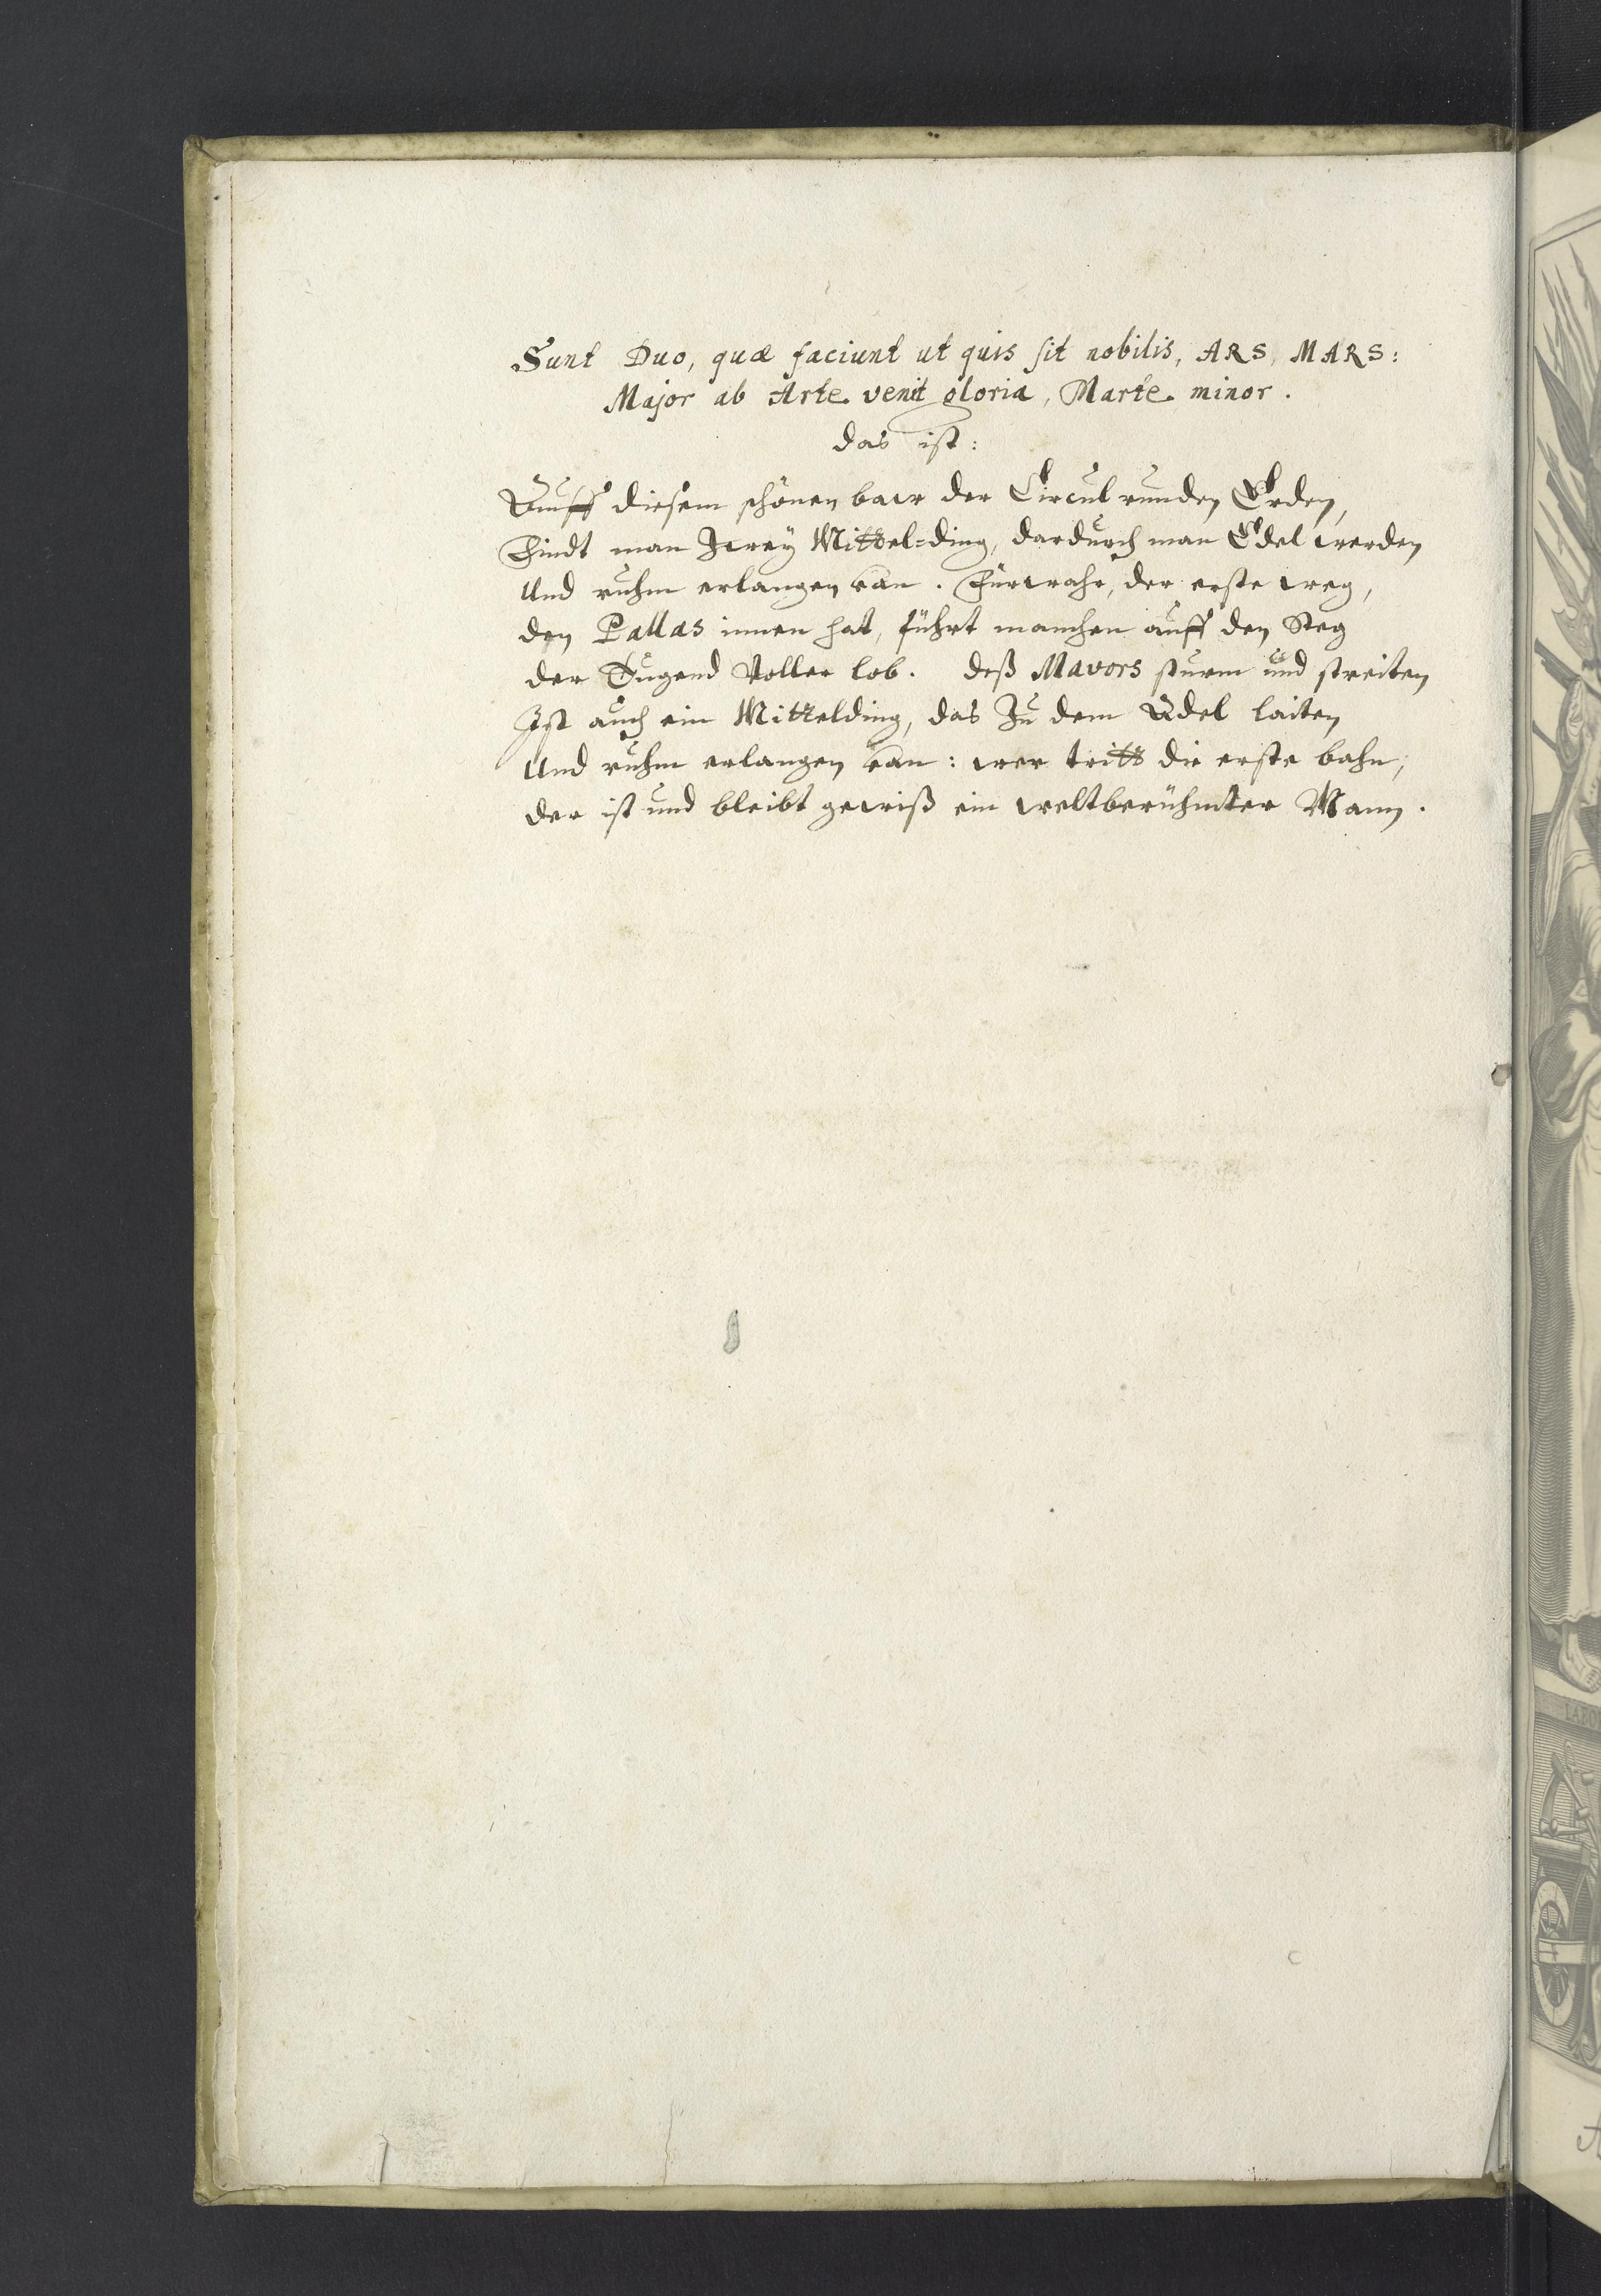 Sunt Duo, quæ faciunt ut quis sit nobilis, ARS, MARS:
Major ab Arte venit gloria, Marte minor.
das ist:
Auff diesem schönen baw der Circul runden Erden,
Findt man Zwey Mittel=ding, dardurch man Edel werden
Und ruhm erlangen kan. Fürwahr, der erste weg,
den Pallas innen hat, führt manchen auff den Steg
der Tugend Voller lob. deß Mavors sturm und streiten
Ist auch ein Mittelding, das Zu dem Adel laiten
Und ruhm erlangen kan: wer tritt die erste bahn,
der ist und bleibt gewiß ein weltberühmter Mann.